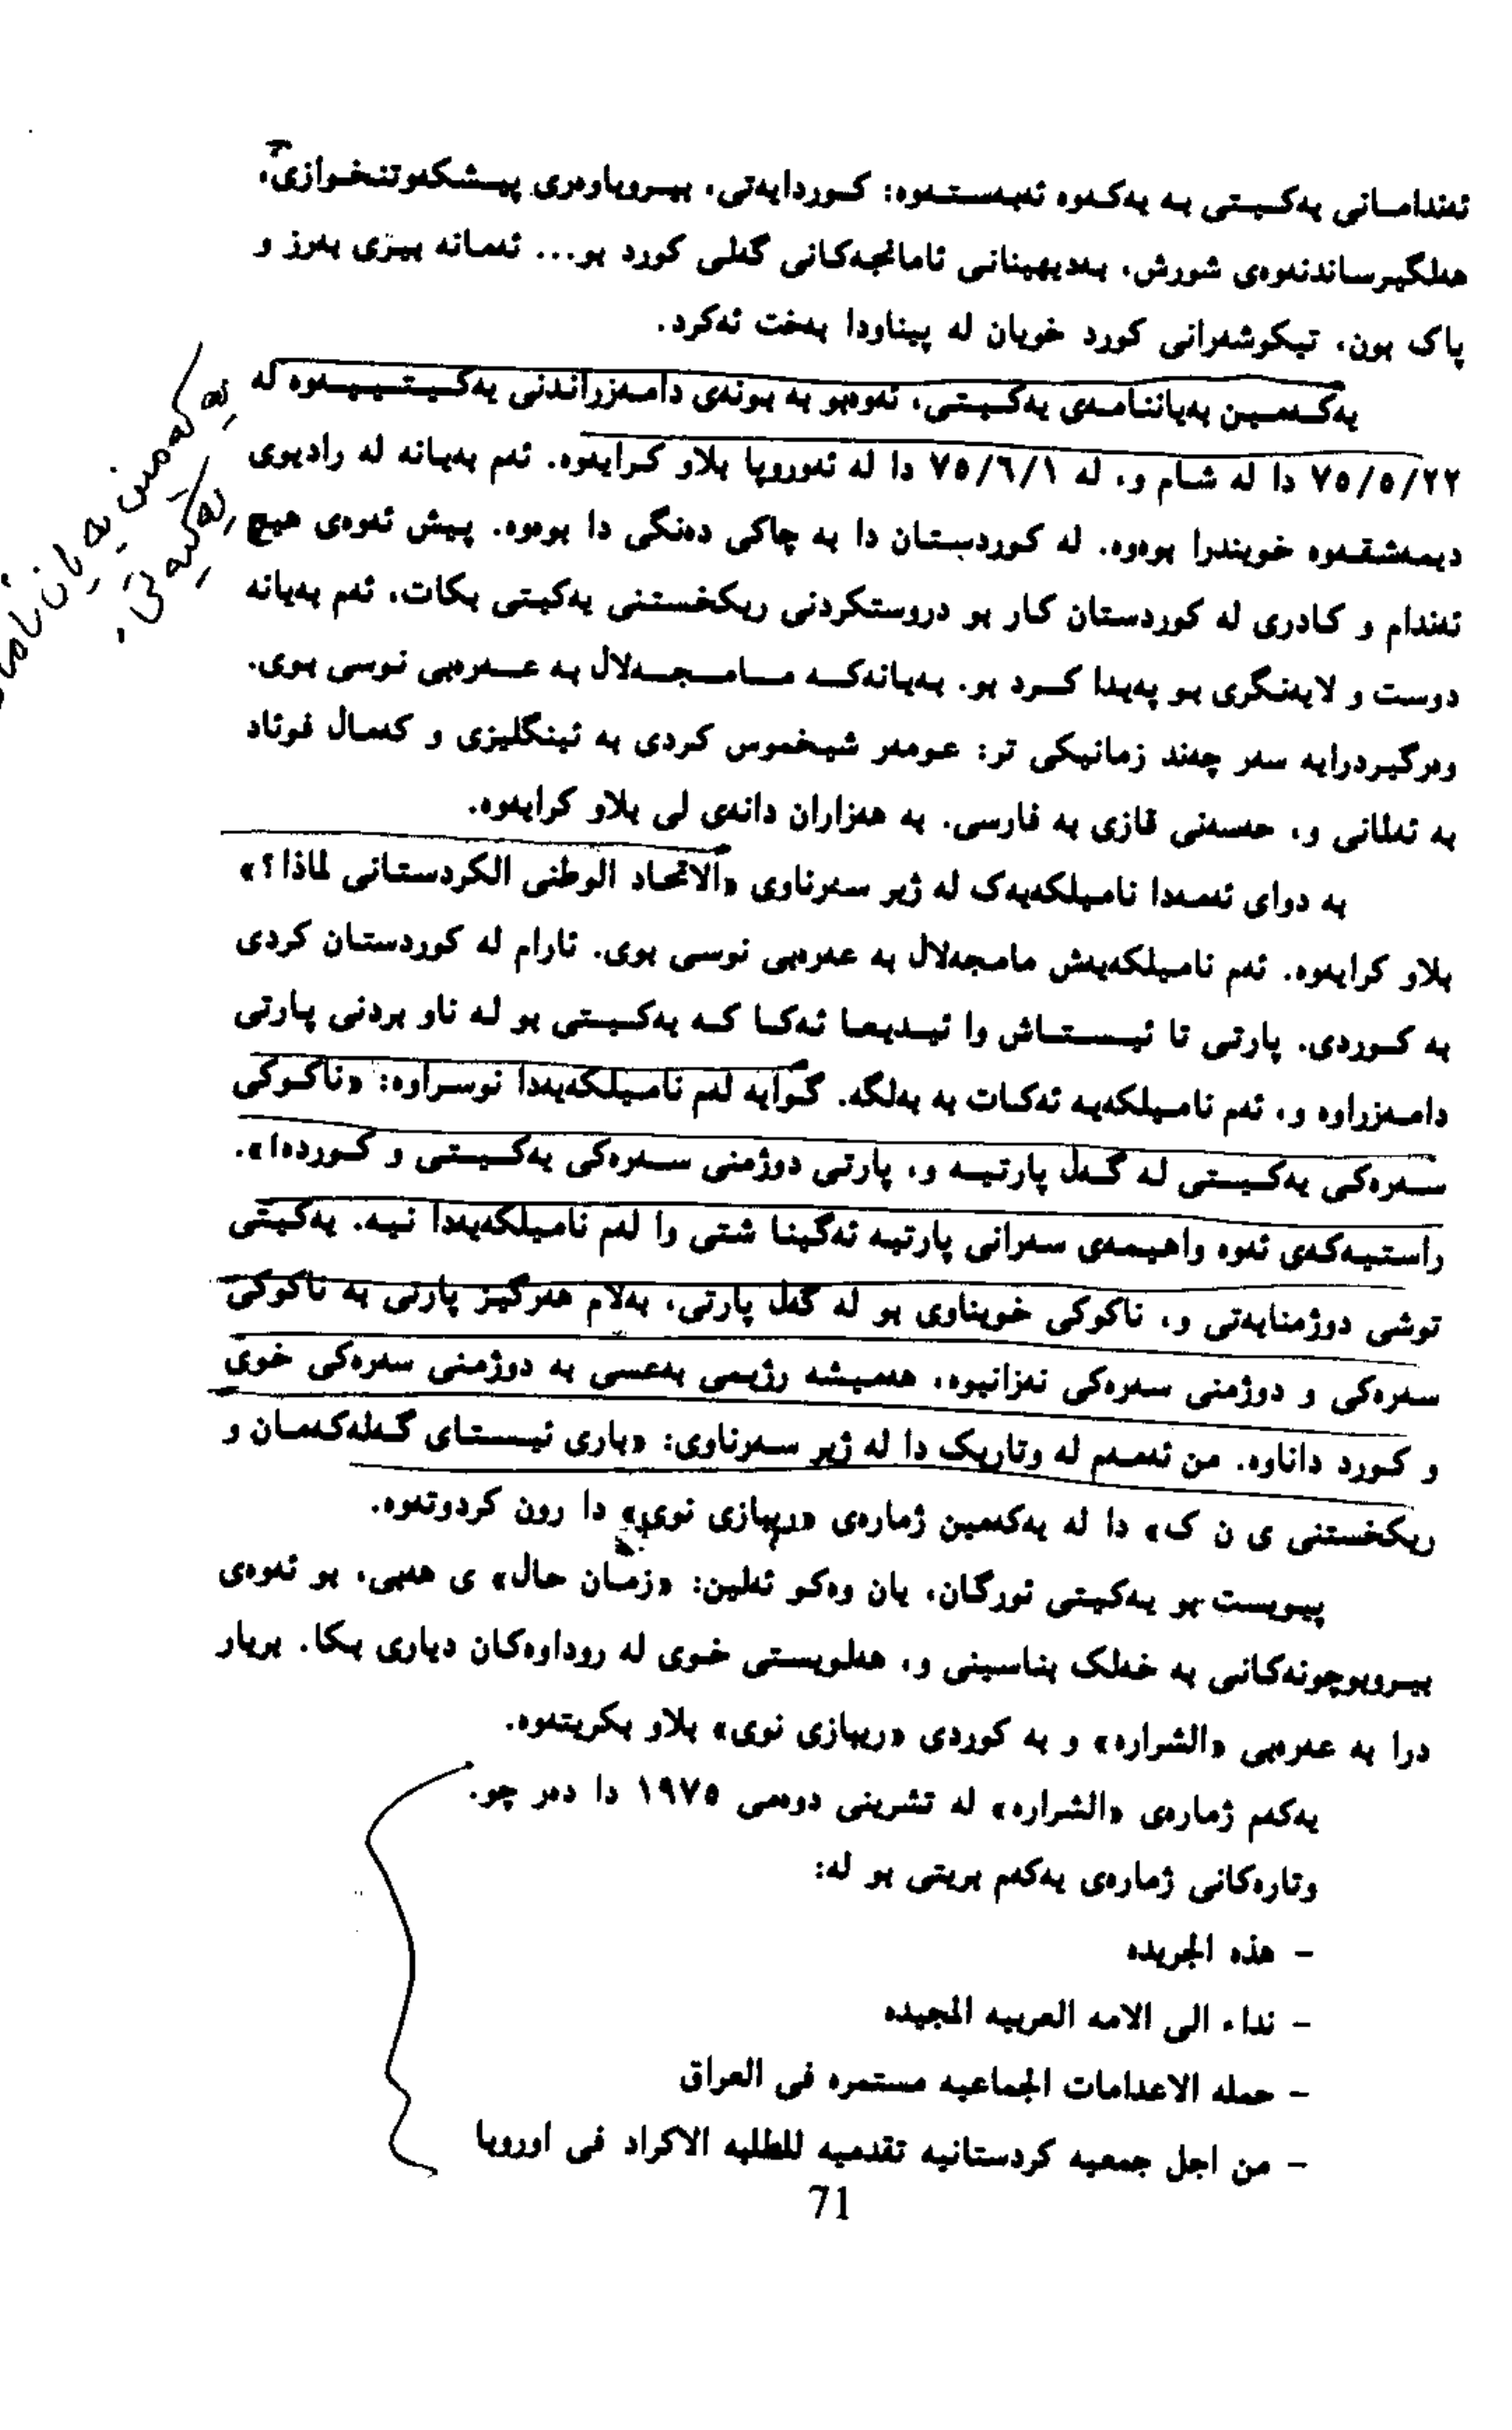 ئەندامانی یەکیتی بە یەکەوە ئەبەستەوە: کوردایەتی، بیروباوەری پیشکەوتنخوازی،
هەلگیرساندنەوەی شورش، بەدیهینانی ئامانجەکانی گەلی کورد بو... ئەمانە بیزی بەرز و
پاک بون، تیکوشەرانی کورد خویان لە پیناودا بەخت ئەکرد.
یەکەمین بەیاننامەی یەکیتی، ئەوەبو بە بونەی دامەزراندنی یەکیتییەوە لە
٧٥/٥/٢٢ دا لە شام و، لە ٧٥/٦/١ دا لە ئەوروپا بلاو کرایەوە. ئەم بەیانە لە رادیوی
دیمەشقەوە خویندرا بوەوە. لە کوردستان دا بە چاکی دەنگی دا بوەوە. پیش ئەوەی هیچ
ئەندام و کادری لە کوردستان کار بو دروستکردنی ریکخستنی یەکیتی بکات، ئەم بەیانە
دوست و لایەنگری بو پەیدا کرد بو. بەیانەکە مامجەلال بە عەرەبی نوسی بوی.
وەرگیردرایە سەر چەند زمانیکی تر: عومەر شیخموس کردی بە ئینگلیزی و کەمال فوئاد
بە ئەلمانی و، حەسەنی قازی بە فارسی. بە هەزاران دانەی لی بلاو کرایەوە.
بە دوای ئەمەدا نامیلکەیەک لە ژیر سەرناوی «الاتحاد الوطنی الکردستانی لماذا؟»
بلاو کرایەوە. ئەم نامیلکەیەش مامجەلال بە عەرەبی نوسی بوی. ئارام لە کوردستان کردی
بە کوردی. پارتی تا ئیستاش وا ئیدیعا ئەکا کە یەکیتی بو لە ناو بردنی پارتی
دامەزراوە و، ئەم نامیلکەیە ئەکات بە بەلگە. گوایە لەم نامیلکەیەدا نوسراوە: «ناکوکی
سەرەکی یەکیتی لە گەل پارتیە و، پارتی دوژمنی سەرەکی یەکیتی و کوردە!».
راستیەکەی ئەوە واهیمەی سەرانی پارتیە ئەگینا شتی وا لەم نامیلکەیەدا نیە. یەکیتی
توشی دوژمنایەتی و، ناکوکی خویناوی بو لە گەل پارتی، بەلام هەرگیز پارتی بە ناکوکی
سەرەکی و دوژمنی سەرەکی نەزانیوە، هەمیشە رژیمی بەعسی بە دوژمنی سەرەکی خوی
و کورد داناوە. من ئەمەم لە وتاریک دا لە ژیر سەرناوی: «باری ئیستای گەلەکەمان و
ریکخستنی ی ن ک» دا لە یەکەمین ژمارەی «ریبازی نوی» دا رون کردوتەوە.
پیویست بو یەکیتی ئورگان، یان وەکو ئەلین: «زمان حال» ی هەبی، بو ئەوەی
بیروبوچونەکانی بە خەلک بناسینی و، هەلویستی خوی لە روداوەکان دیاری بکا. بریار
درا بە عەرەبی «الشرارە» و بە کوردی «ریبازی نوی» بلاو بکریتەوە.
یەکەم ژمارەی «الشرارە» لە تشرینی دوەمی ١٩٧٥ دا دەر چو.
وتارەکانی ژمارەی یەکەم بریتی بو لە:
- هذه الجريده
- نداء الى الامه العربيه المجيده
- حمله الاعدامات الجماعيه مستمره فى العراق
- من اجل جمعيه كردستانيه تقدميه للطلبه الاكراد فى اوروپا
71
یەکەمین بەیان نامە
یەکیەتی